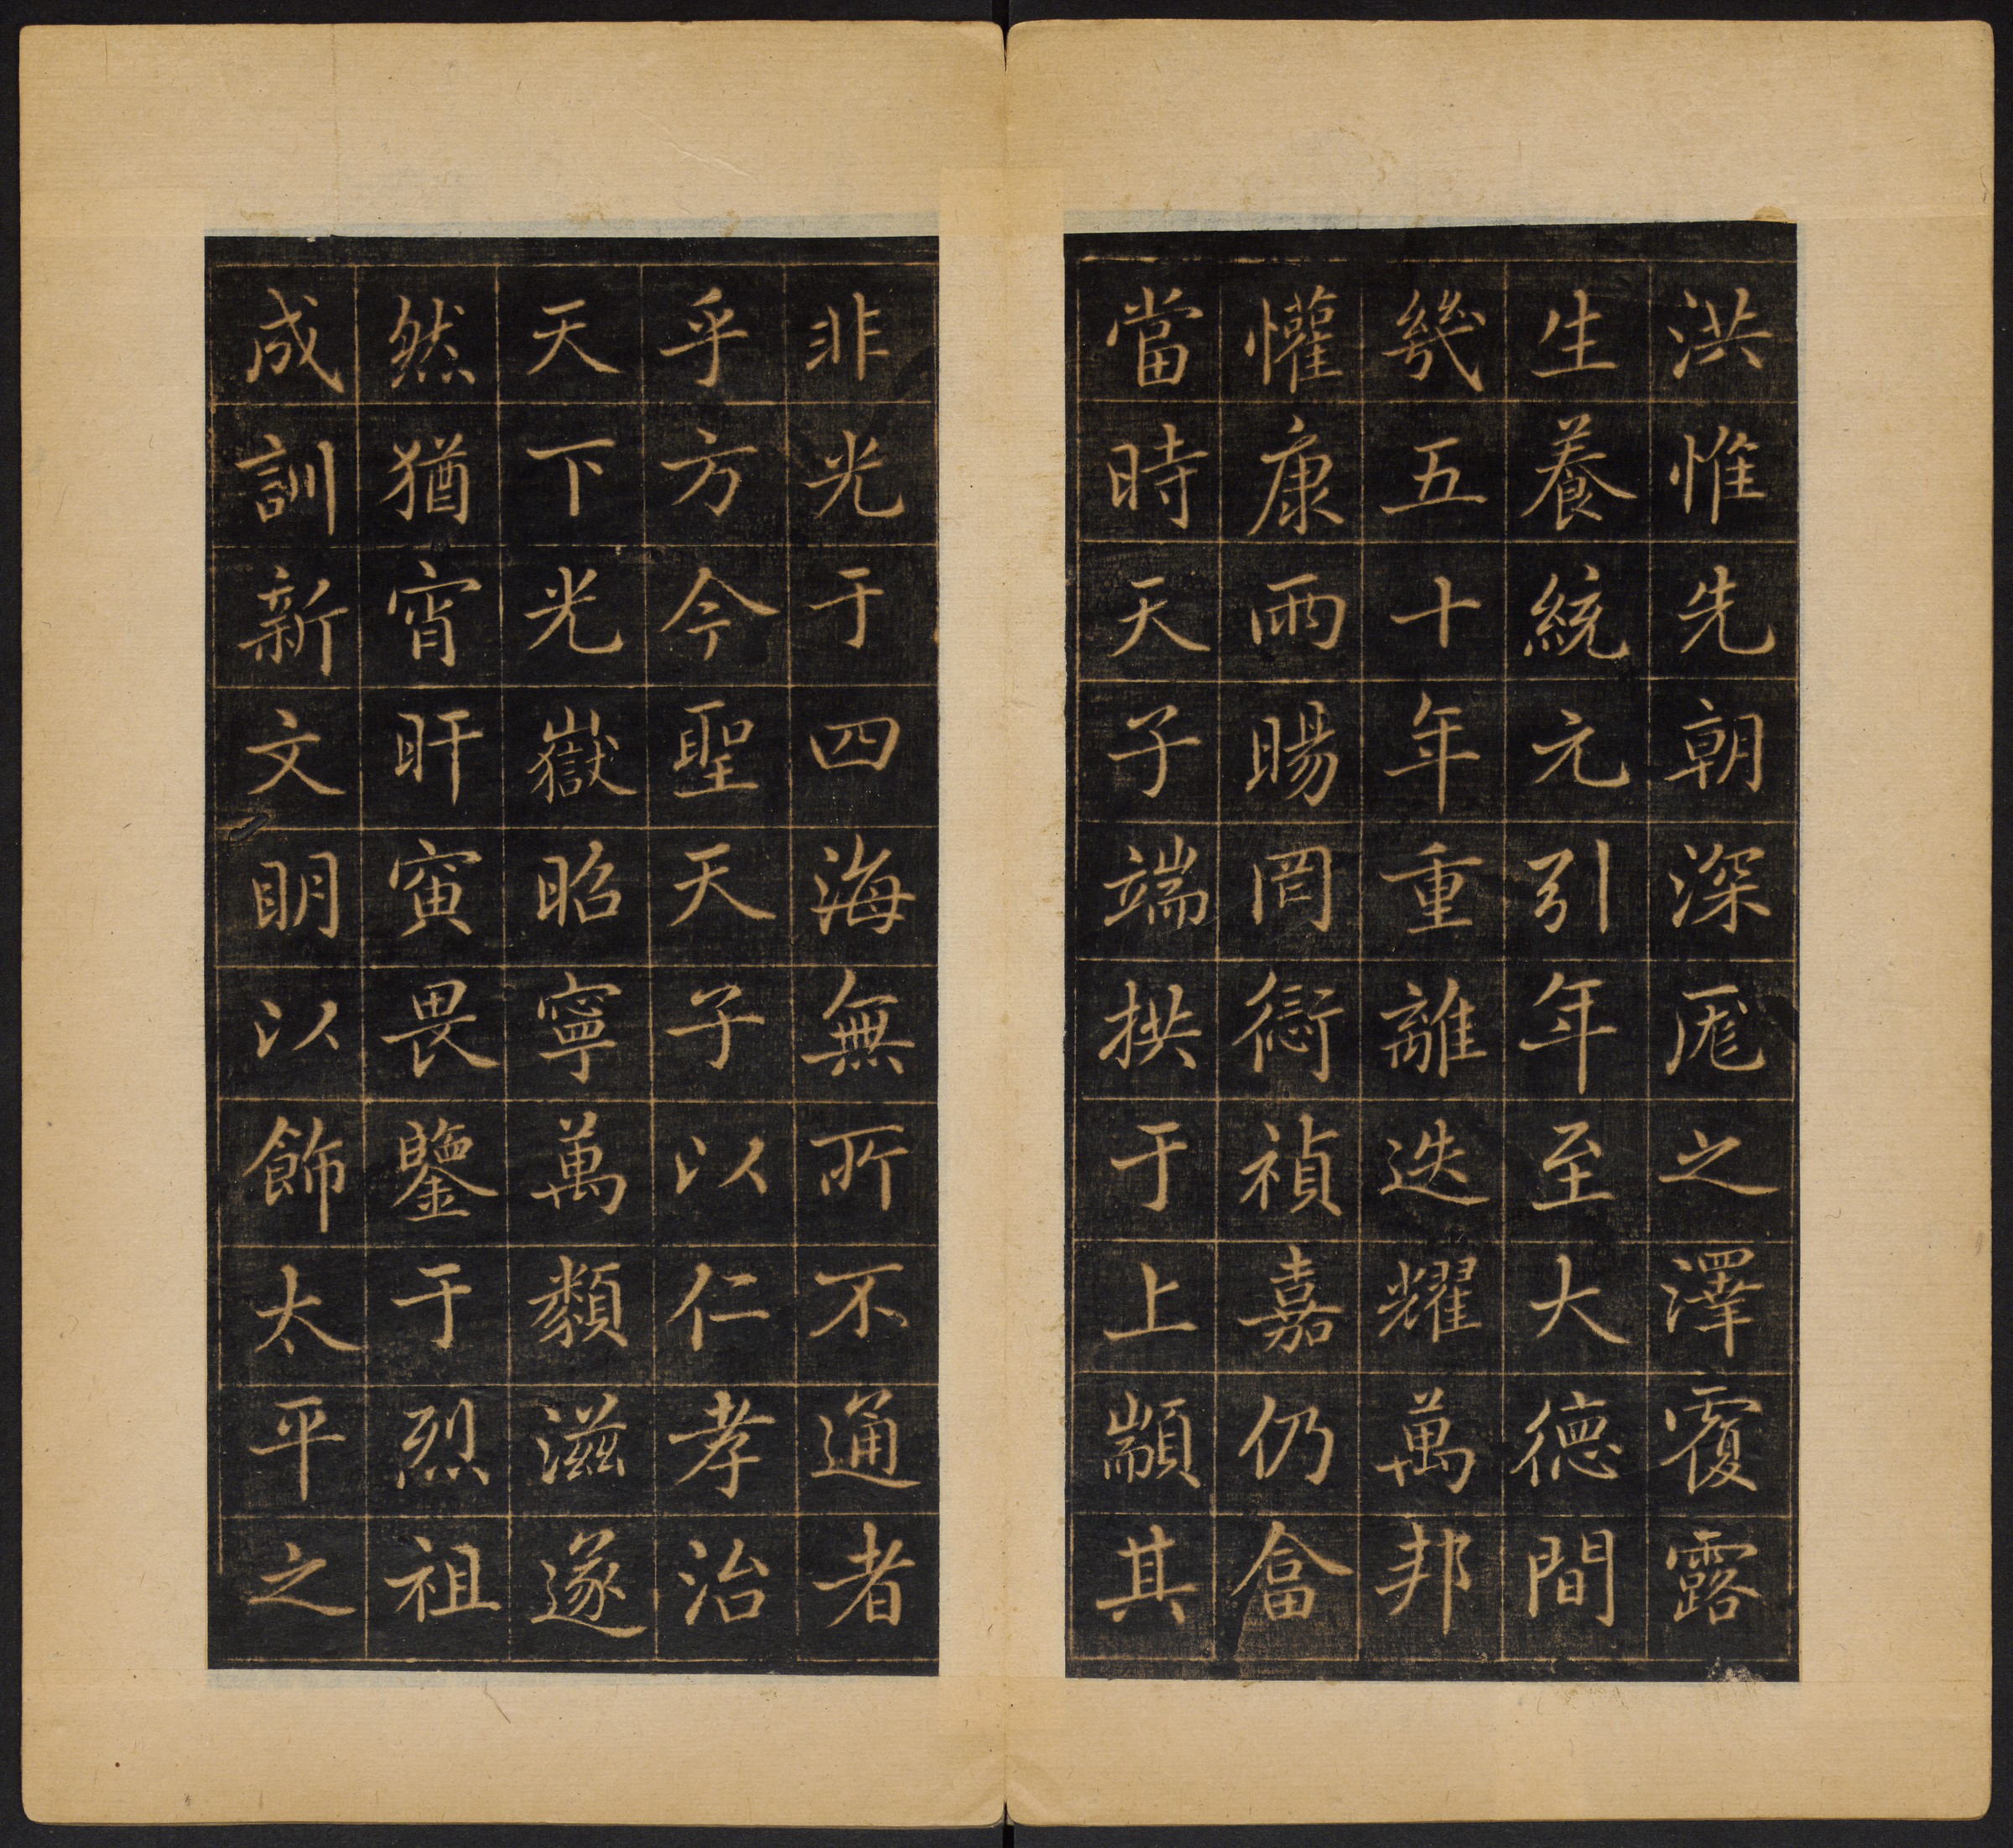 洪惟先朝深厖之澤覆露
生養統元引年至大德間
幾五十年重離迭耀萬邦
懽康雨暘罔愆禎嘉仍畣
當時天子端拱于上顓其
非光于四海無所不通者
乎方今聖天子以仁孝治
天下光嶽昭寧萬類滋遂
然猶宵旰寅畏鑒于烈祖
成訓新文眀以飾太平之